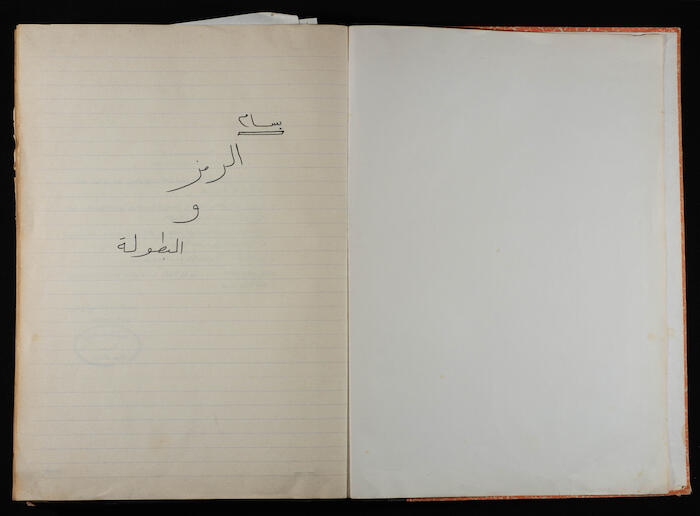 بسام
الرمز
و
البطولة